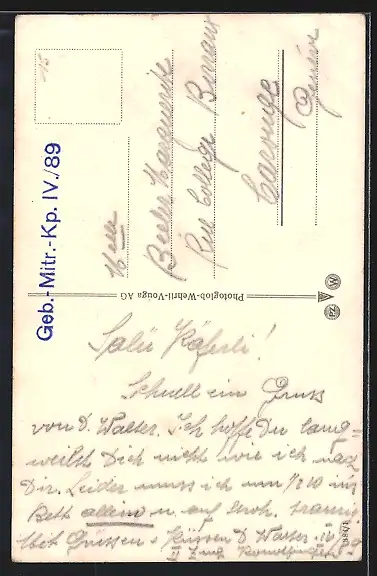 Geb.-Mitr.-Kp. IV./89
Melle
Beeler Marguerite
Rue Collège
Carouge
Genève
Photoglob-Wehrli-Vouga AG
PZ
W
Salü Käferli!
Schnell ein Gruss
von d. Walter. Ich hoffe Du lang=
weilst Dich nicht wie ich nach
Dir. Leider muss ich um 1/2 10 ins
Bett allein u. auf
Mit Grüssen & Küssen D. Walter.